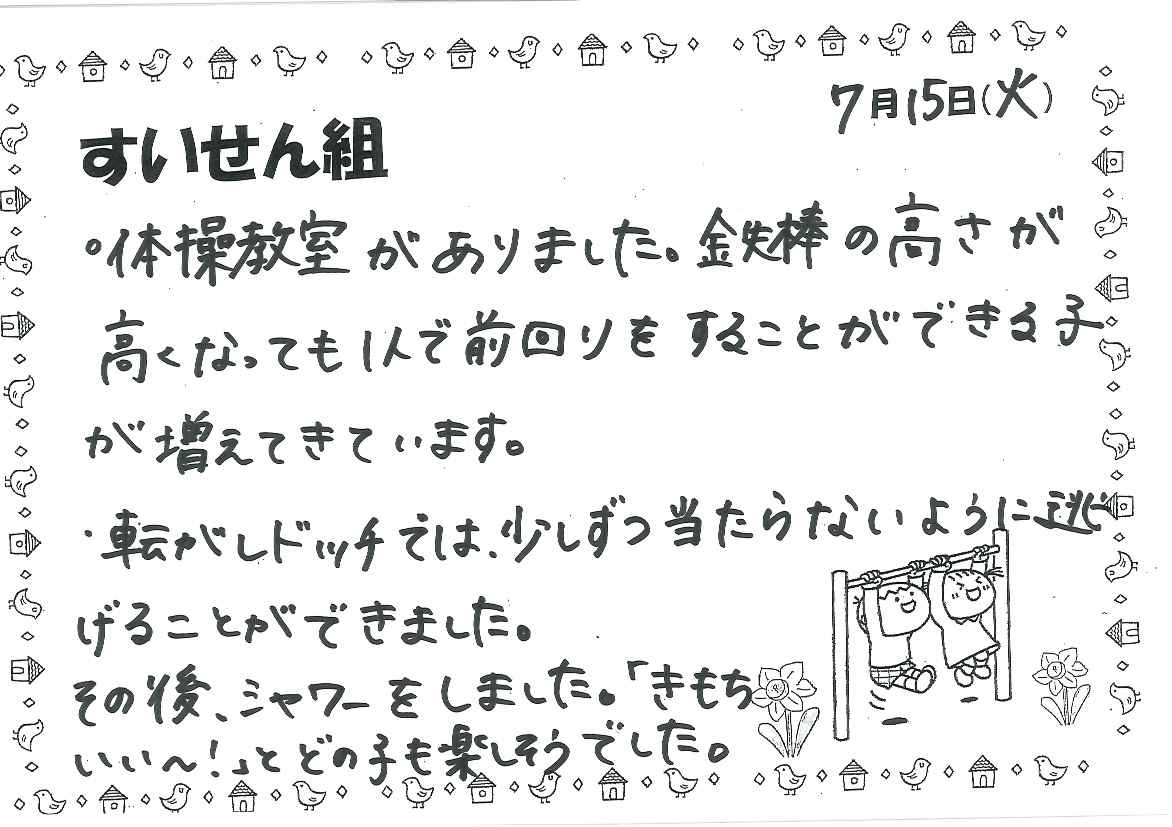 7月15日(火)
すいせん組
○体操教室がありました。鉄棒の高さが
高くなっても1人で前回りをすることができる子
が増えてきています。
・転がしドッチでは、少しずつ当たらないように逃
げることができました。
その後、シャワーをしました。「きもち
いい〜!」とどの子も楽しそうでした。